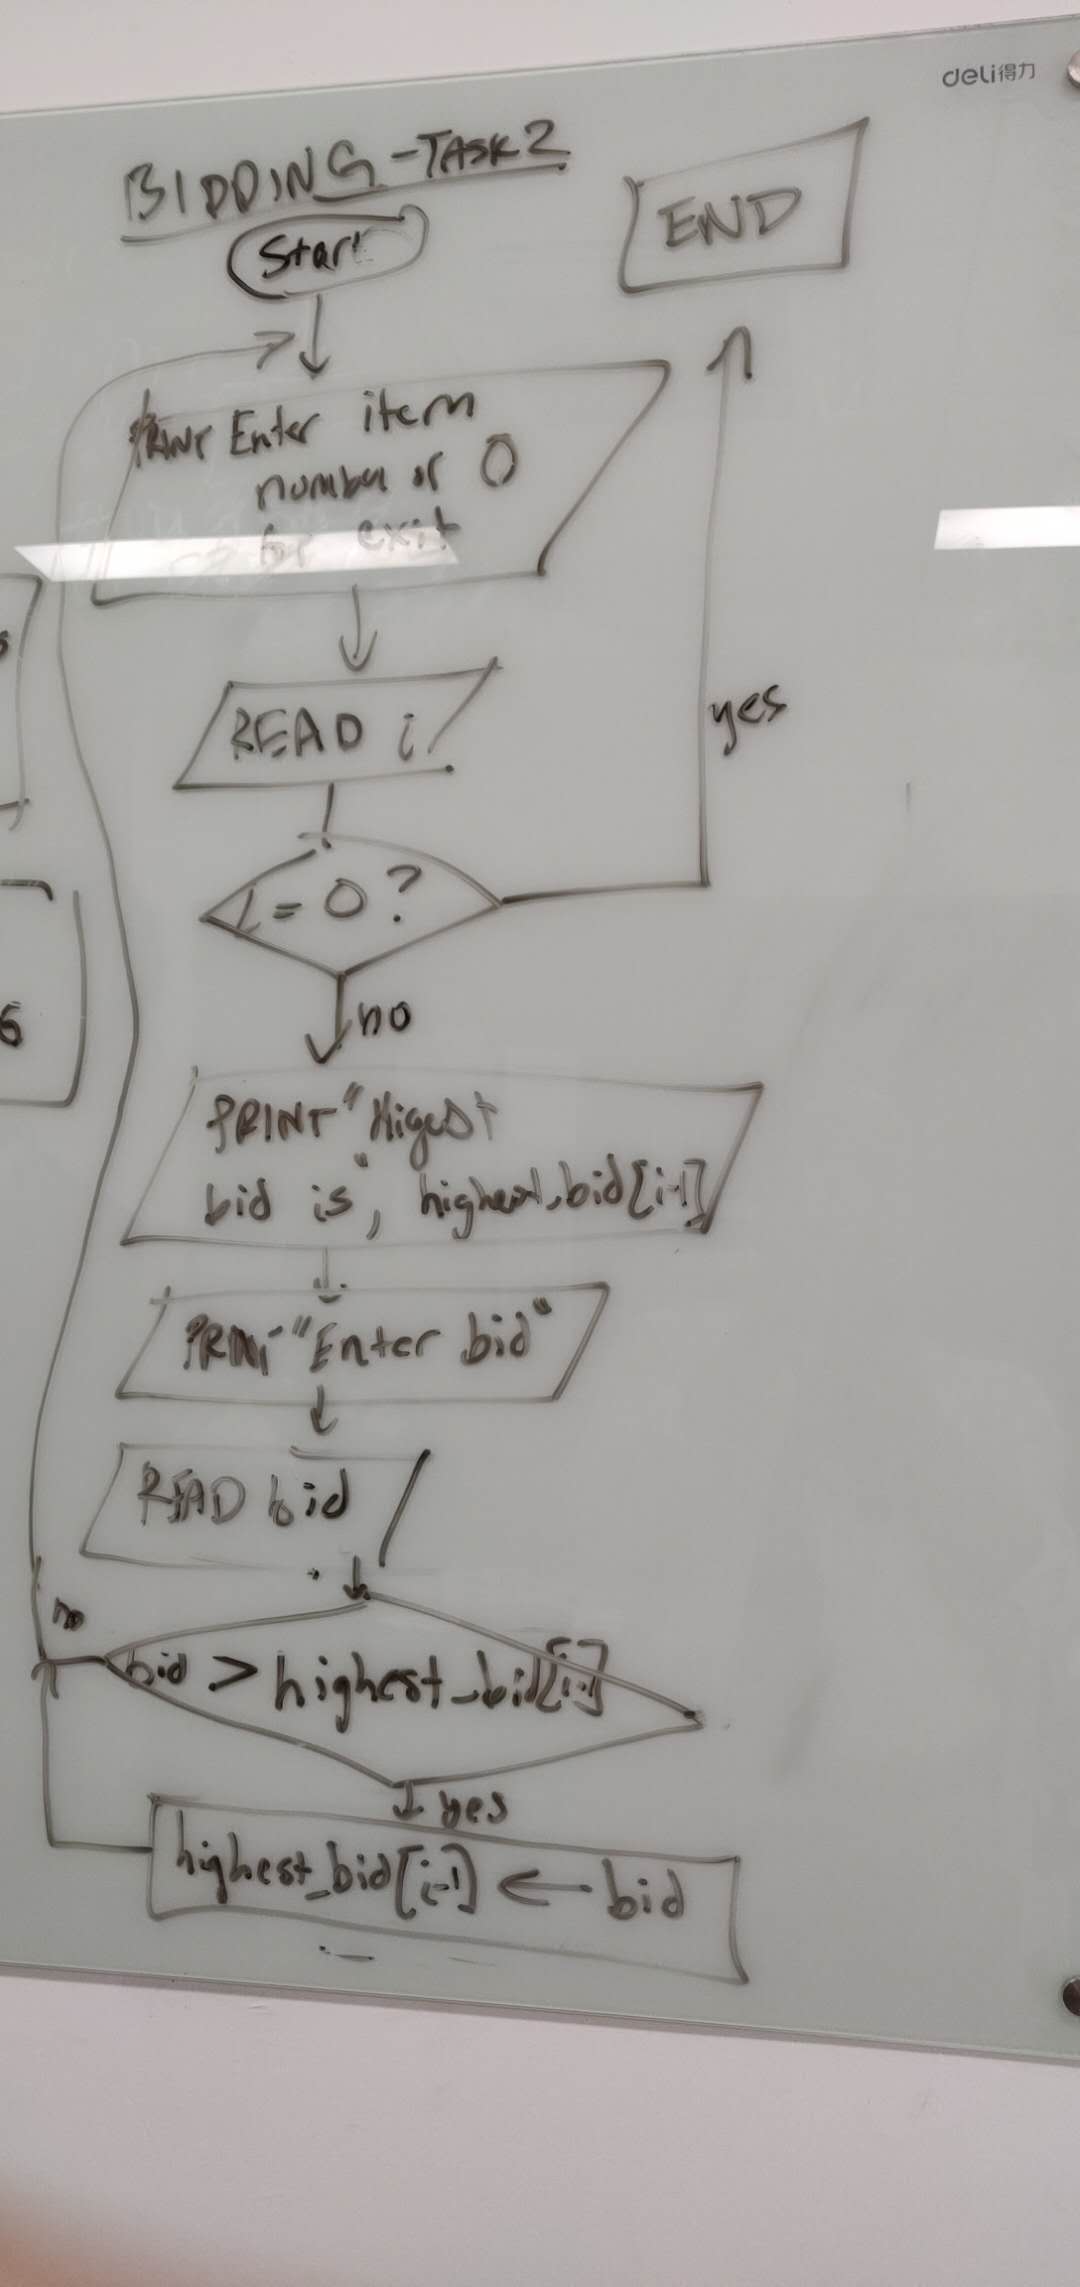 deli得力
BIDDING-TASK2
Start
END
PRINT Enter item
number or 0
for exit
READ i
yes
i = 0 ?
no
PRINT "Higest
bid is", highest_bid[i-1]
PRINT "Enter bid"
READ bid
no
bid > highest_bid[i-1]
yes
highest_bid[i-1] ← bid